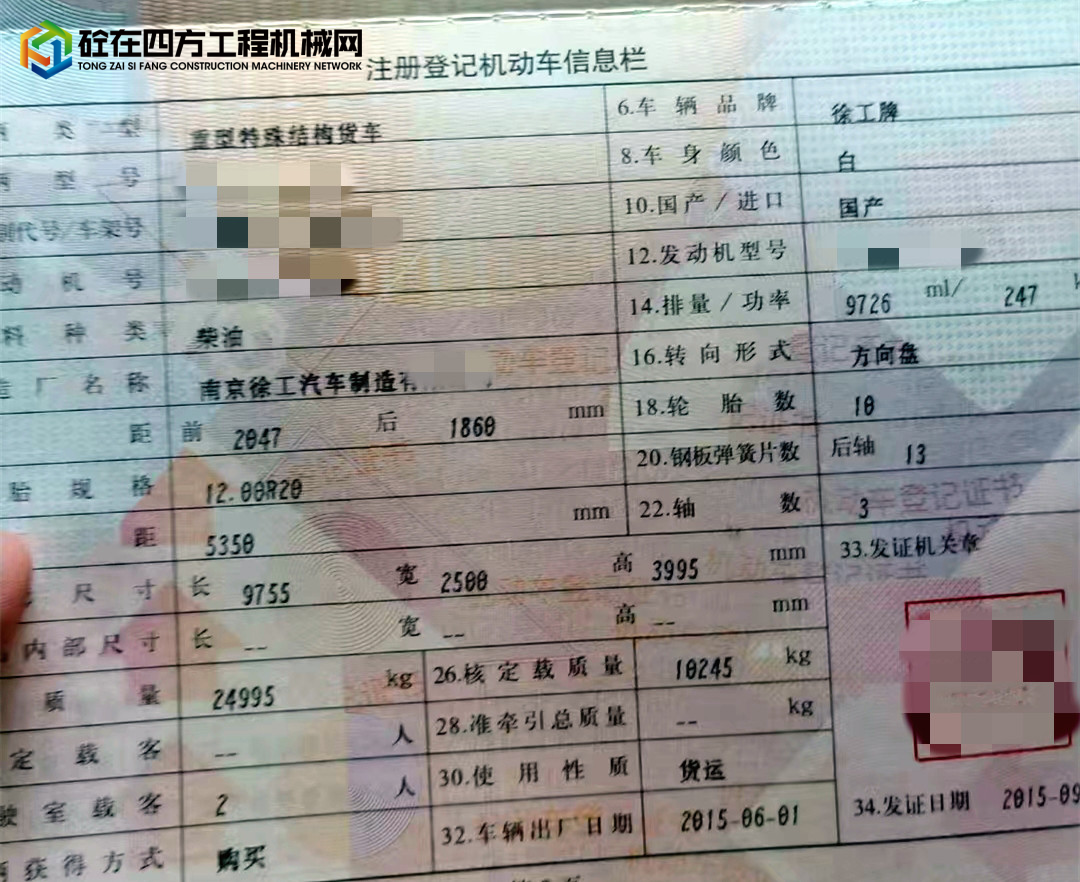 砼在四方工程机械网
TONG ZAI SI FANG CONSTRUCTION MACHINERY NETWORK
注册登记机动车信息栏
类型 重型特殊结构货车 6.车辆品牌 徐工牌
型号 8.车身颜色 白
代号/车架号 10.国产/进口 国产
机号 12.发动机型号
料种类 柴油 14.排量/功率 9726 ml/ 247
厂名称 南京徐工汽车制造 16.转向形式 方向盘
距 前 2047 后 1860 mm 18.轮胎数 10
胎规格 12.00R20 20.钢板弹簧片数 后轴 13
距 5350 mm 22.轴数 3
尺寸 长 9755 宽 2500 高 3995 mm 33.发证机关章
内部尺寸 长 -- 宽 -- 高 -- mm
质量 24995 kg 26.核定载质量 10245 kg
定载客 -- 人 28.准牵引总质量 -- kg
驶室载客 2 人 30.使用性质 货运
获得方式 购买 32.车辆出厂日期 2015-06-01 34.发证日期 2015-09
机动车登记证书